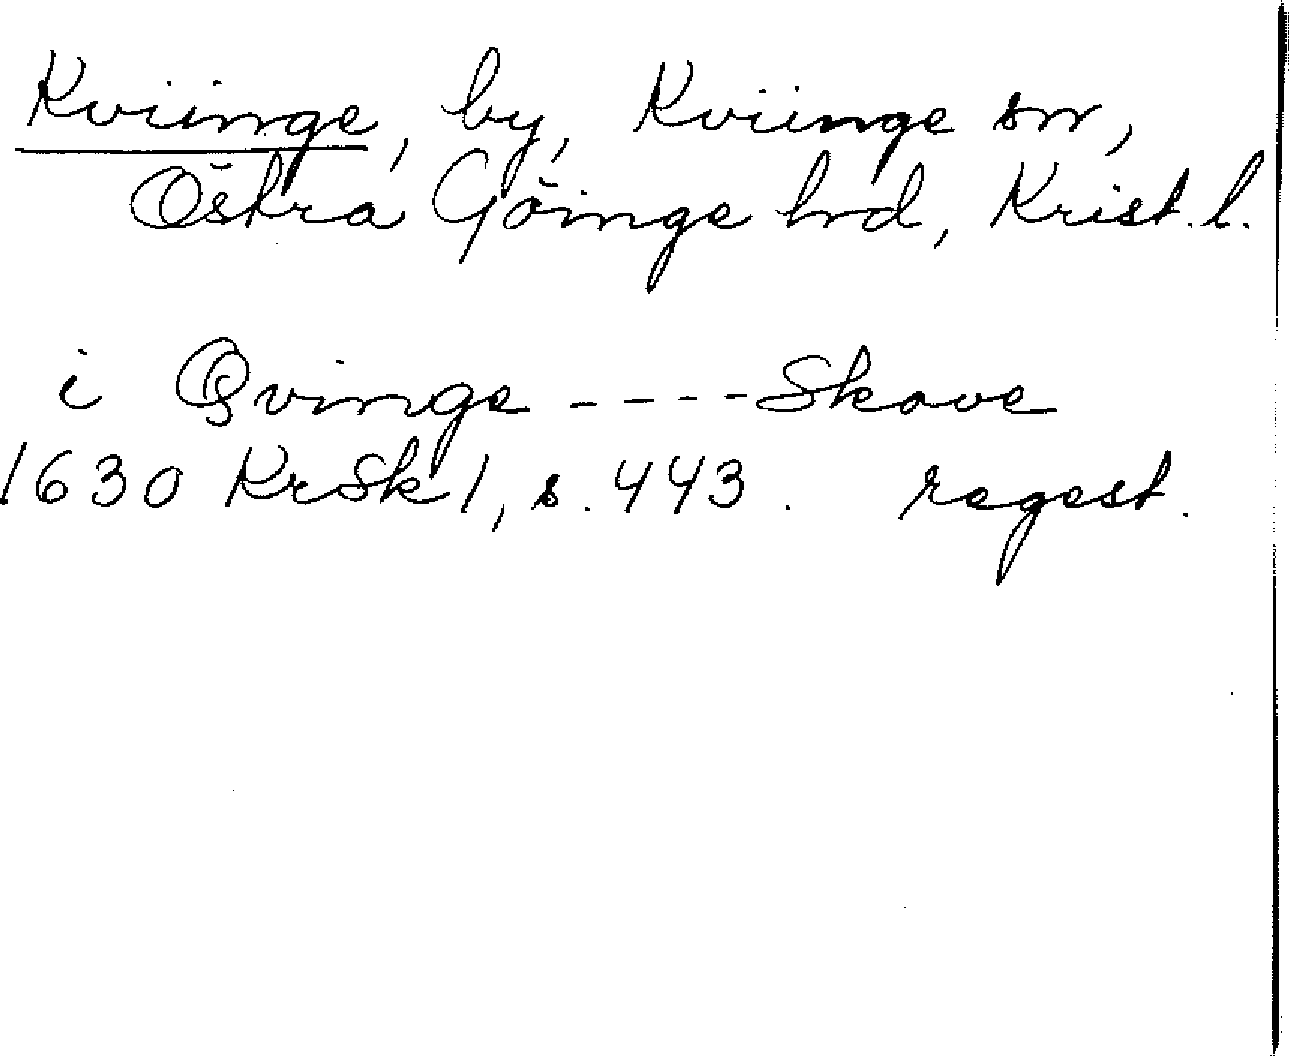 Kviinge, by, Kviinge sn,
Östra Göinge hd, Krist. l.
i Qvinge ----- Skove
1630 KrSk 1, s. 443. regest.